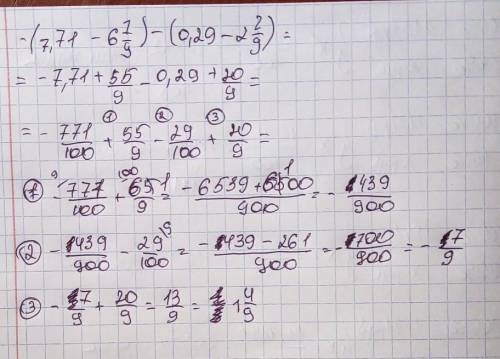 -(7,71 - 6 7/9) - (0,29 - 2 2/9) =
= -7,71 + 55/9 - 0,29 + 20/9 =
= - 771/100 + ① 55/9 - ② 29/100 + ③ 20/9 =
① - 771/100 + /9 = (-6539 + )/900 = - 1439/900
② - 1439/900 - 29/100 = (-1439 - 261)/900 = - 1700/900 = - 17/9
③ - 17/9 + 20/9 = 13/9 = 1 4/9